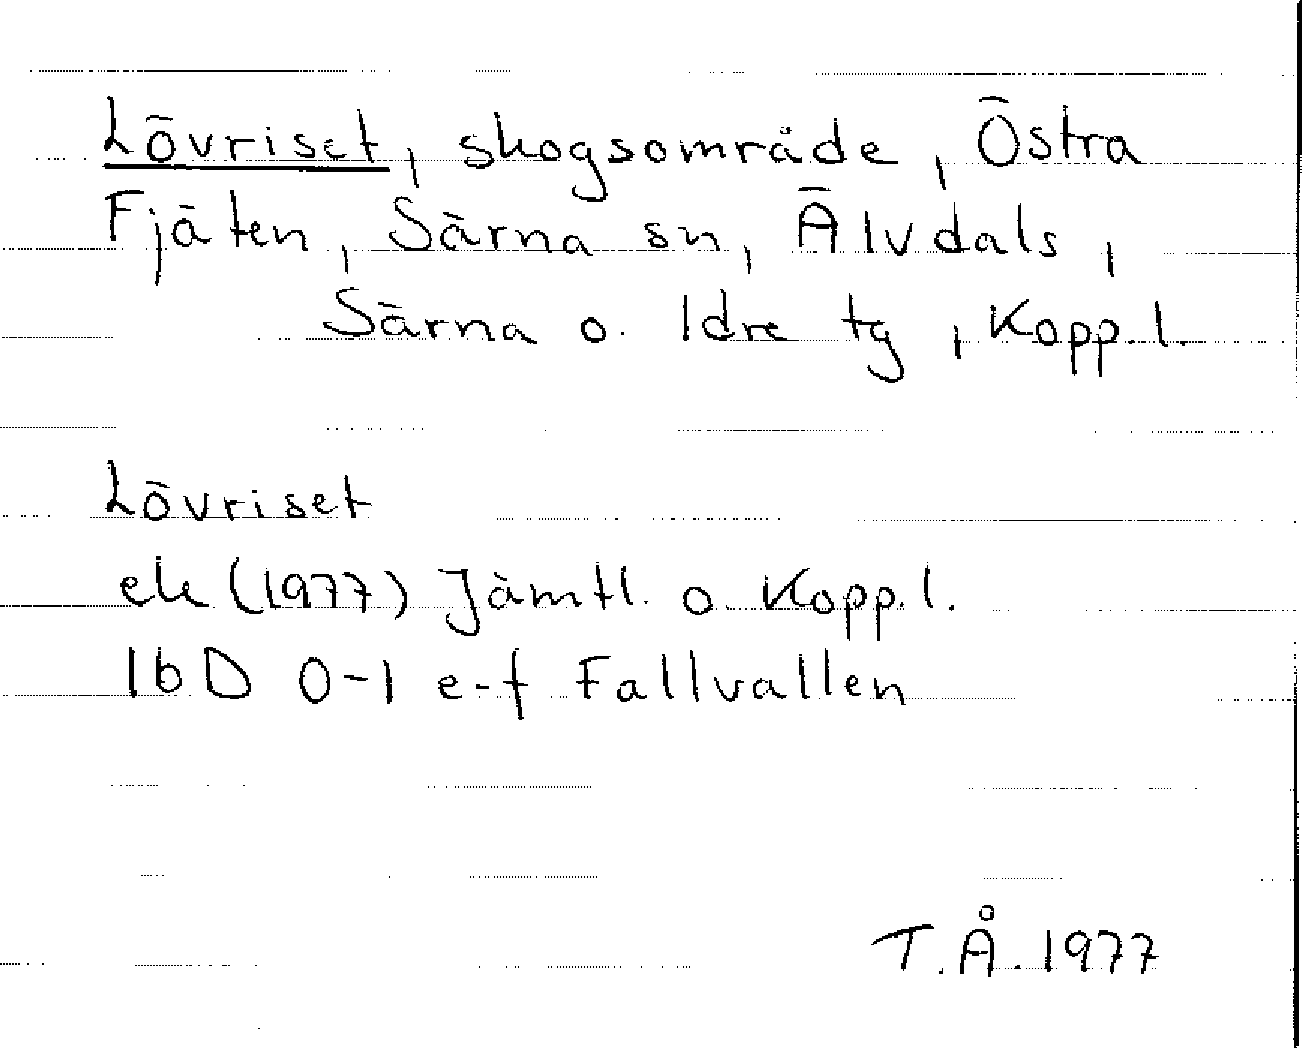 Lövriset, skogsområde, Östra
Fjäten, Särna sn, Älvdals,
Särna o. Idre tg, Kopp.l.
Lövriset
ek (1977) Jämtl. o Kopp.l.
16D 0-1 e-f Fallvallen
T.Å. 1977